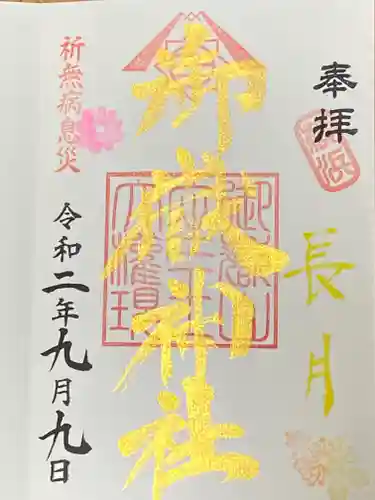 奉拝
長月
御嶽神社
祈無病息災
令和二年九月九日